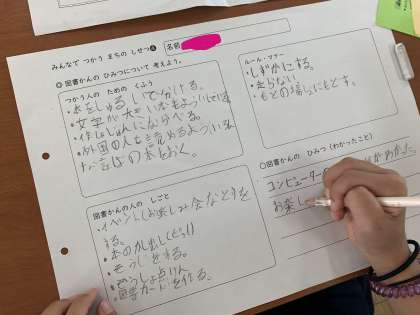 みんなで つかう まちの しせつ④
名前
◎ 図書かんのひみつについて 考えよう。
つかう人の ための くふう
・本をしゅるいで分ける。
・文字が大きい本をよういしている
・作しゃじゅんにならべる。
・外国の人も読めるようにいろん
な言ばの本をおく。
ルール・マナー
・しずかにする。
・走らない。
・もとの場しょにもどす。
図書かんの人の しごと
・イベント(お楽しみ会など)をす
る。
・本のかし出し(ピッ!)
・そうじをする。
・図書カードを作る。
○図書かんの ひみつ (わかったこと)
コンピューター
がわかった。
お楽し